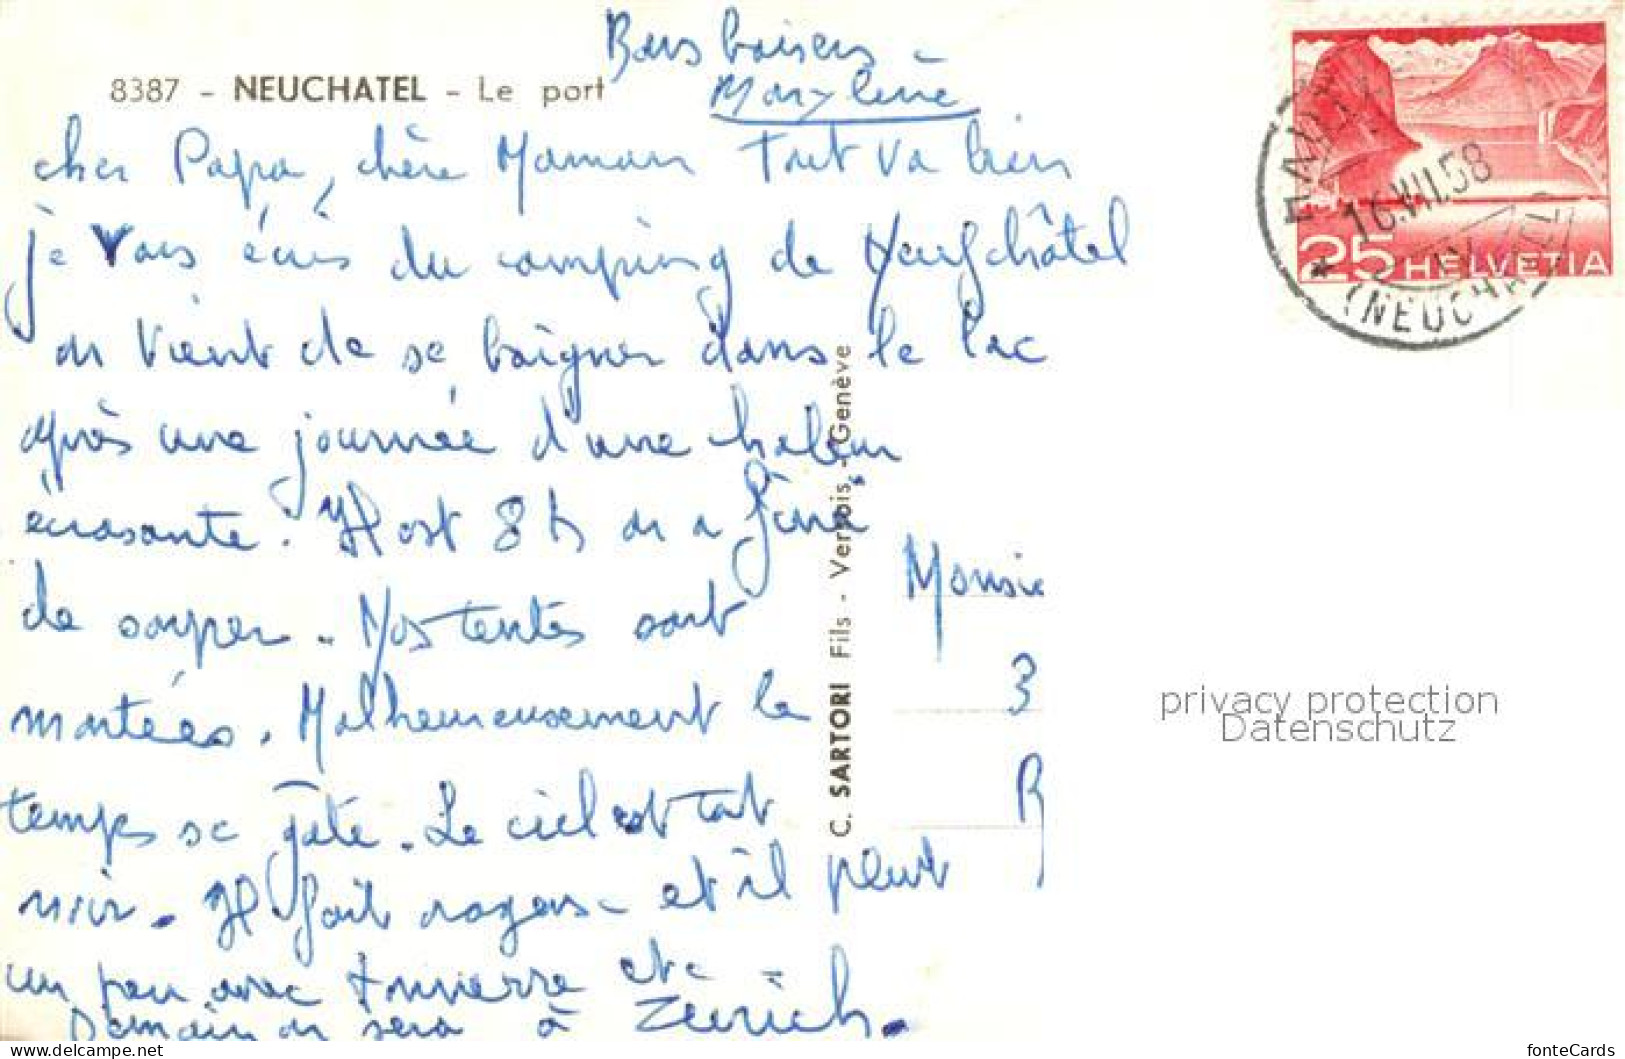 Bons baisers -
8387 - NEUCHATEL - Le port
Marylène
cher Papa, chère Maman Tout va bien
je vous écris du camping de Neufchâtel
on vient de se baigner dans le lac
après une journée d'une chaleur
écrasante. Il est 8 h on a fini
de souper. Nos tentes sont
montées. Malheureusement le
temps se gâte. Le ciel est tout
noir. Il fait orageux et il pleut
un peu avec tonnerre etc -
Demain on sera à Zürich.
C. SARTORI Fils - Vernois, - Genève
Monsie
3
R
16.VII.58
(NEUCHATEL)
25 HELVETIA
privacy protection
Datenschutz
fonteCards